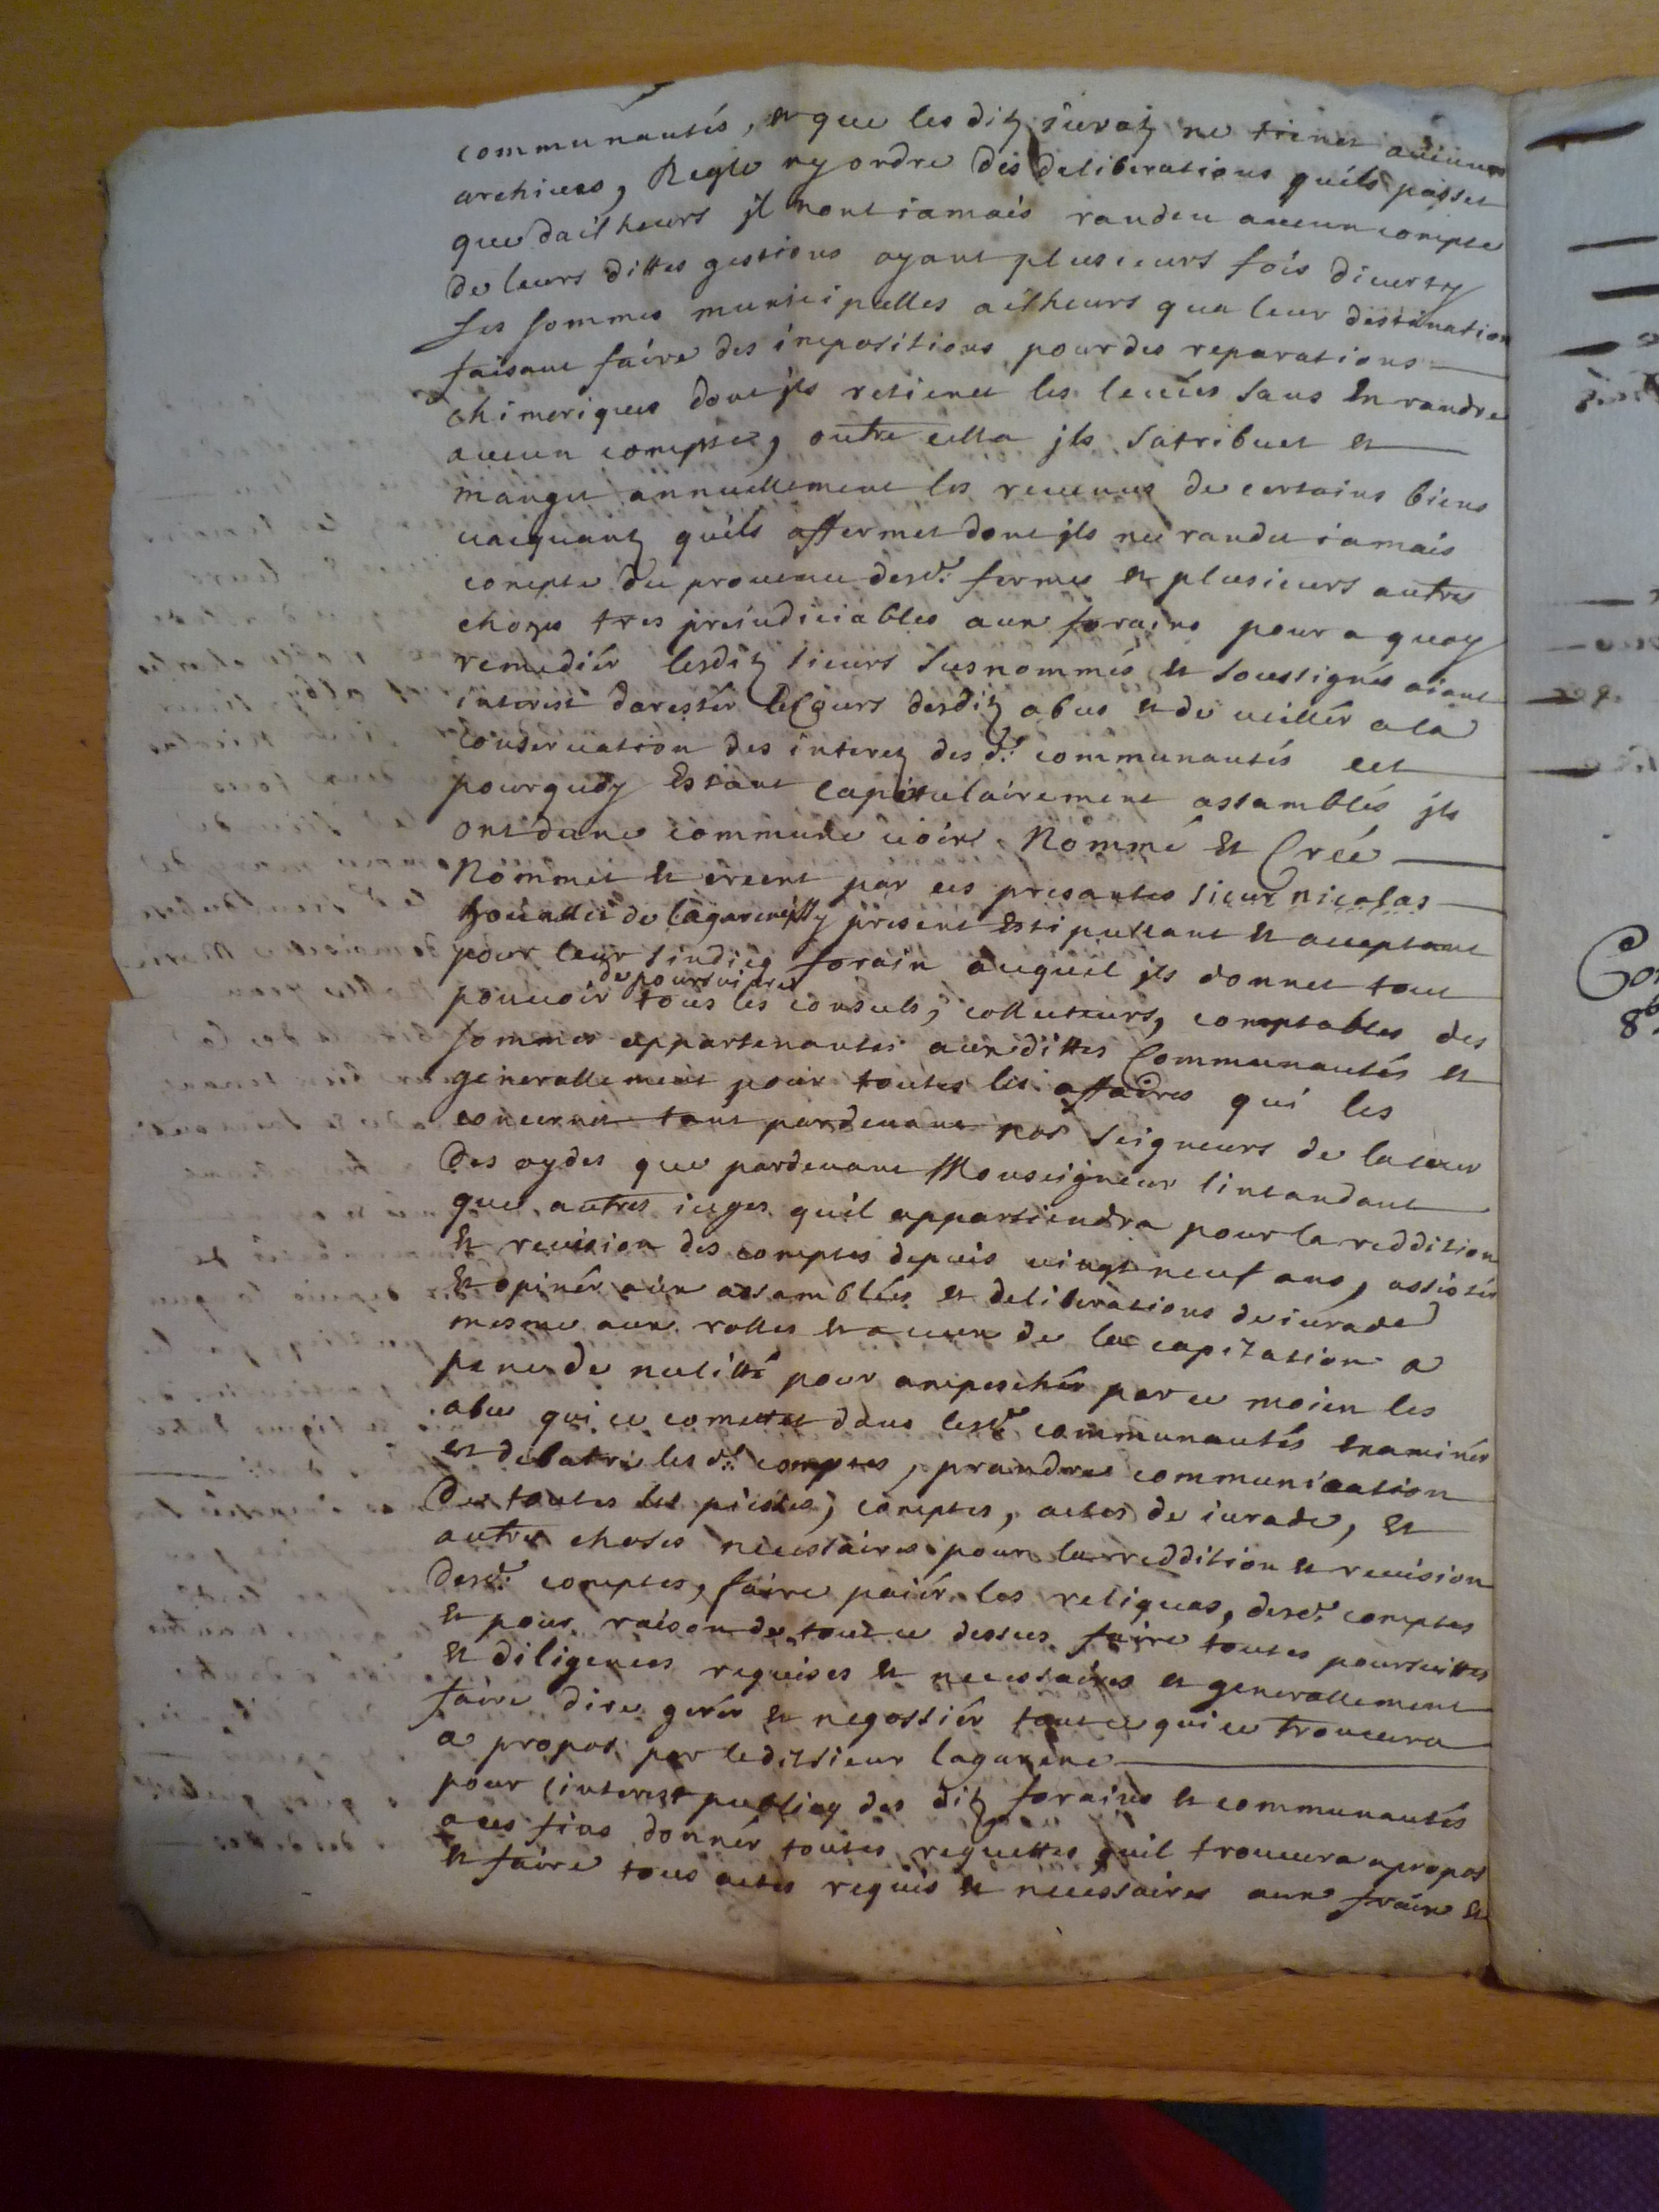 communautés, et que les ditz juratz ne tienet aucunes
archives, Regle ny ordre des deliberations quils passet
que dailheurs jl nont jamais randeu aucun compte
de leurs dittes gestions ayant plusieurs fois diverty
les sommes municipalles ailheurs qua leur destination
faisant faire des impositions pour des reparations
chimeriques dont jls retienet les levées sans en randre
aucun compte, outre cella jls satribuet et
manget annuellement les revenus de certains biens
vacquantz quils affermet dont jls ne randet jamais
compte du provenu desd. fermes et plusieurs autres
chozes tres prejudiciables aux forains pour a quoy
remediér lesditz sieurs susnommés et soussignés aiant
interest darestér le Cours desditz abus et de veillér a la
conservation des interetz des d. communautés est
pourquoy Estant capitulairement assamblés jls
ont dune commune voix Nommé et Créé
Nommet et creent par ces presantes sieur nicolas
de lagarene present Estipullant et acceptant
pour leur sindicq forain auquel jls donnet tout
de poursuivre
pouvoir tous les consuls, collecteurs, comptables des
sommes appartenantes aux dittes Communautés et
generallement pour toutes les affaires qui les
concernet tant pardevant nos seigneurs de la cour
Des aydes que pardevant Monseigneur lintandant
que autres juges quil appartiendra pour la reddition
et revision des comptes depuis vingt neuf ans, assistér
et opinér aux assamblées et deliberations de jurade
mesme aux rolles et a ceux de la capitation a
pene de nulitté pour ampeschér par ce moien les
abus qui ce comettet dans lesd. communautés examinér
et debatre les d. comptes, prandre communication
De toutes les piesses, comptes, actes de jurade, et
autres choses necessaires pour la reddition et revision
Desd. comptes, faire paiér les reliquas, desd. comptes
et pour raison de tout ce dessus faire toutes poursuittes
et diligences requises et necessaires et generallement
faire dire gerér et negossiér tout ce qui ce trouvera
a propos par ledit sieur lagarene
pour linterest publicq des ditz forains et communautés
a ces fins donnér toutes requettes quil trouvera apropos
et faire tous actes requis et necessaires aux forains et